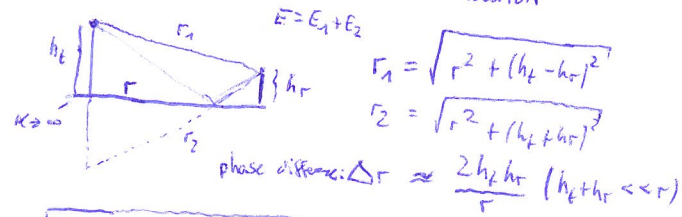 E = E₁ + E₂
r₁
hₜ
r
hᵣ
r₂
r₁ = √(r² + (hₜ - hᵣ)²)
r₂ = √(r² + (hₜ + hᵣ)²)
phase difference: Δr ≈ 2hₜhᵣ/r (hₜ + hᵣ << r)